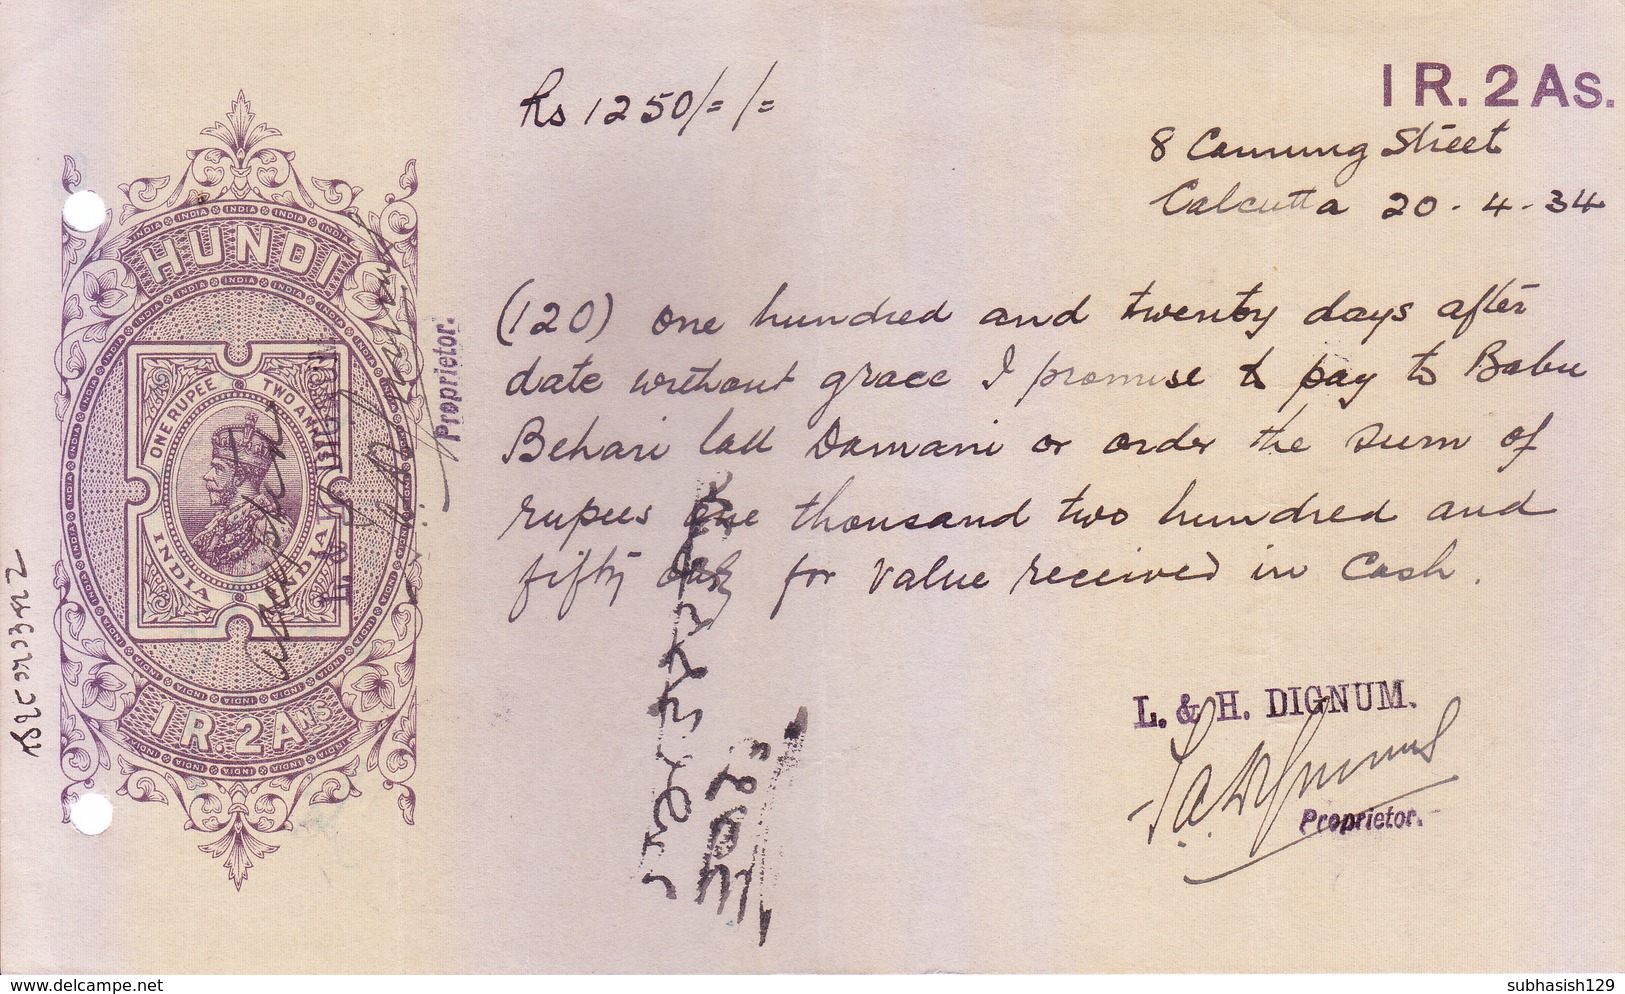 1 R. 2 As.
Rs 1250/= /=
8 Canning Street
Calcutta 20 - 4 - 34
HUNDI
ONE RUPEE TWO ANNAS
INDIA INDIA
1 R. 2 ANS
Proprietor.
(120) one hundred and twenty days after
date without grace I promise to pay to Babu
Behari Lall Damani or order the sum of
rupees one thousand two hundred and
fifty only for value received in Cash.
L. & H. DIGNUM.
Proprietor.
www.delcampe.net
subhasish129